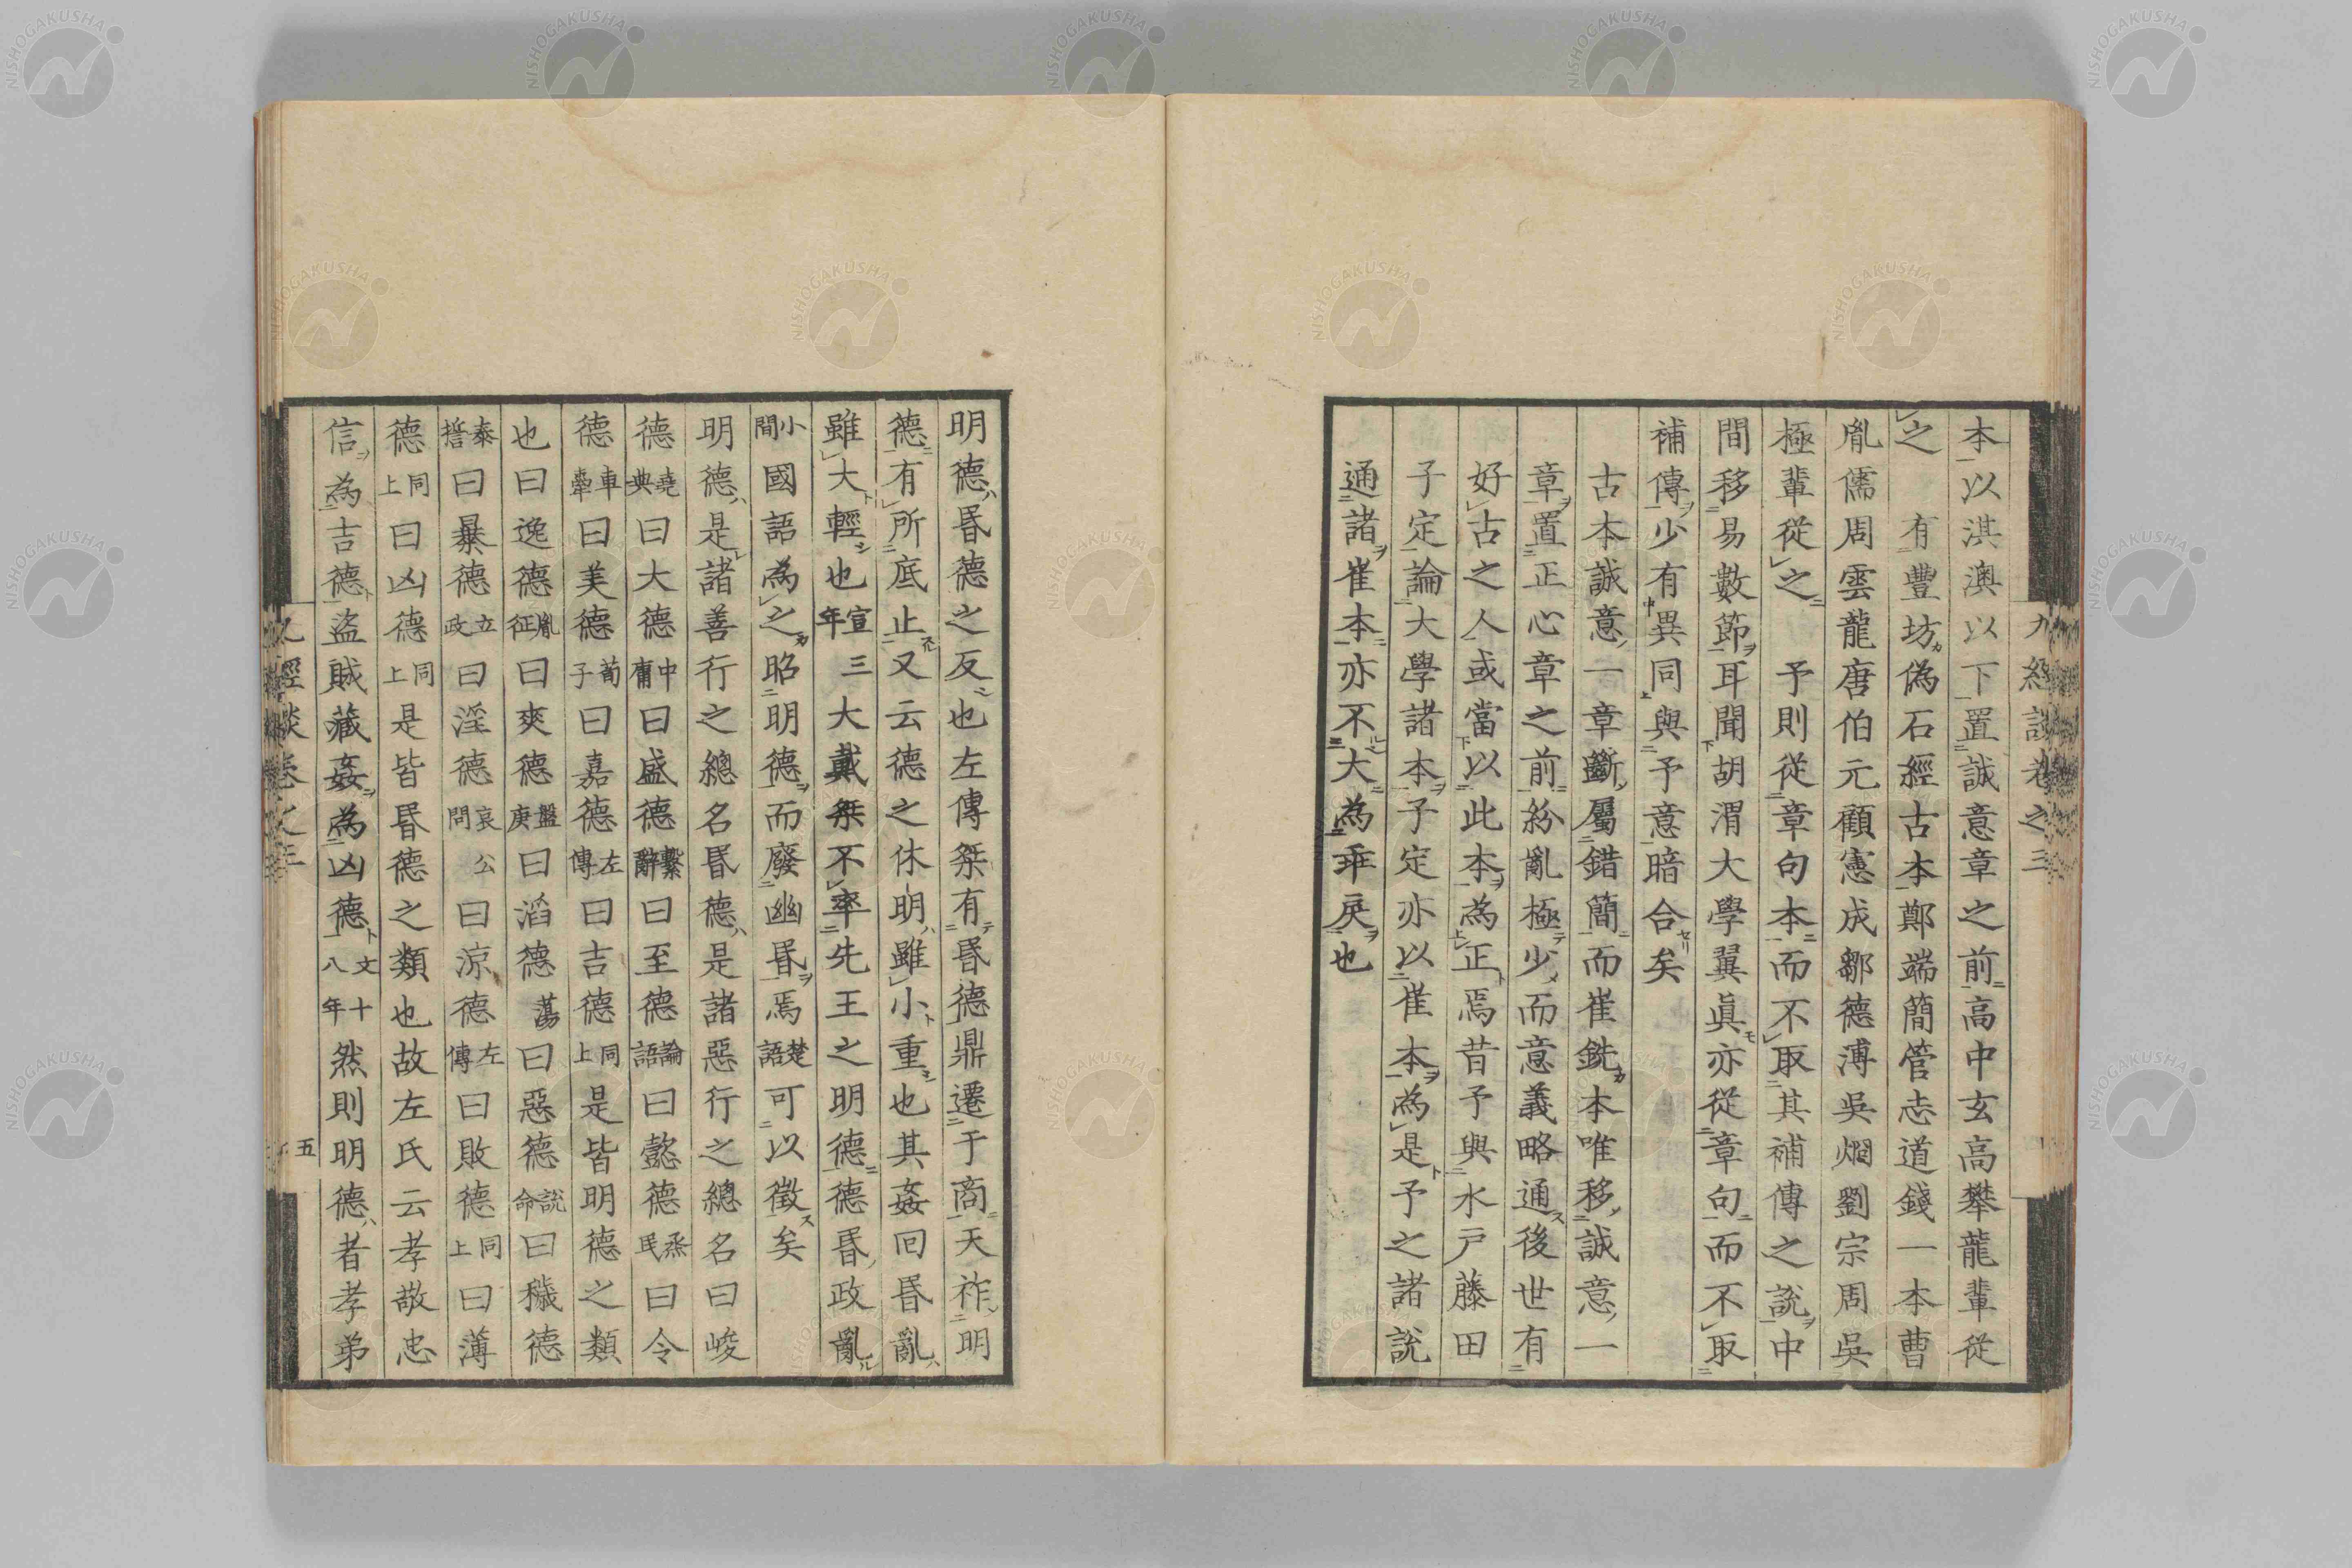 本以淇澳以下置誠意章之前高中玄高攀龍輩從
之　有豐坊偽石經古本鄭端簡管志道錢一本曹
胤儒周雲龍唐伯元顧憲成鄒德溥吳烱劉宗周吳
極輩從之　予則從章句本而不取其補傳之說中
間移易數節耳聞胡渭大學翼眞亦從章句而不取
補傳少有異同與予意暗合矣
古本誠意一章斷屬錯簡而崔銑本唯移誠意一
章置正心章之前紛亂極少而意義略通後世有
好古之人或當以此本為正焉昔予與水戶藤田
子定論大學諸本子定亦以崔本為是予之諸說
通諸崔本亦不大為乖戾也
明德昬德之反也左傳桀有昬德鼎遷于商天祚明
德有所底止又云德之休明雖小重也其姦回昬亂
雖大輕也宣三年大戴桀不率先王之明德德昬政亂
小間國語為之昭明德而廢幽昬焉楚語可以徵矣
明德是諸善行之總名昬德是諸惡行之總名曰峻
德堯典曰大德中庸曰盛德繫辭曰至德論語曰懿德烝民曰令
德車舝曰美德荀子曰嘉德左傳曰吉德同上是皆明德之類
也曰逸德胤征曰爽德盤庚曰滔德蕩曰惡德說命曰穢德
泰誓曰暴德立政曰淫德哀公問曰涼德左傳曰敗德同上曰薄
德同上曰凶德同上是皆昬德之類也故左氏云孝敬忠
信為吉德盜賊藏姦為凶德文十八年然則明德者孝弟
九經談卷之三
五